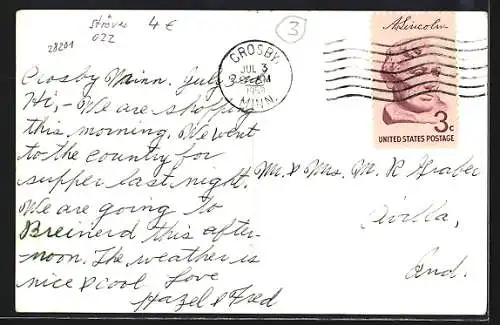 Ströver 4 €
28201 022
3
CROSBY,
JUL 3
3 PM
1959
MINN.
A. Lincoln
3c
UNITED STATES POSTAGE
Crosby Minn. July
Hi, - We are shopping
this morning. We went
to the country for
supper last night.
We are going to
Breinerd this after-
noon. The weather is
nice & cool. Love
Hazel & Fred
Mr. & Mrs. M. R. Graber
Avilla,
Ind.